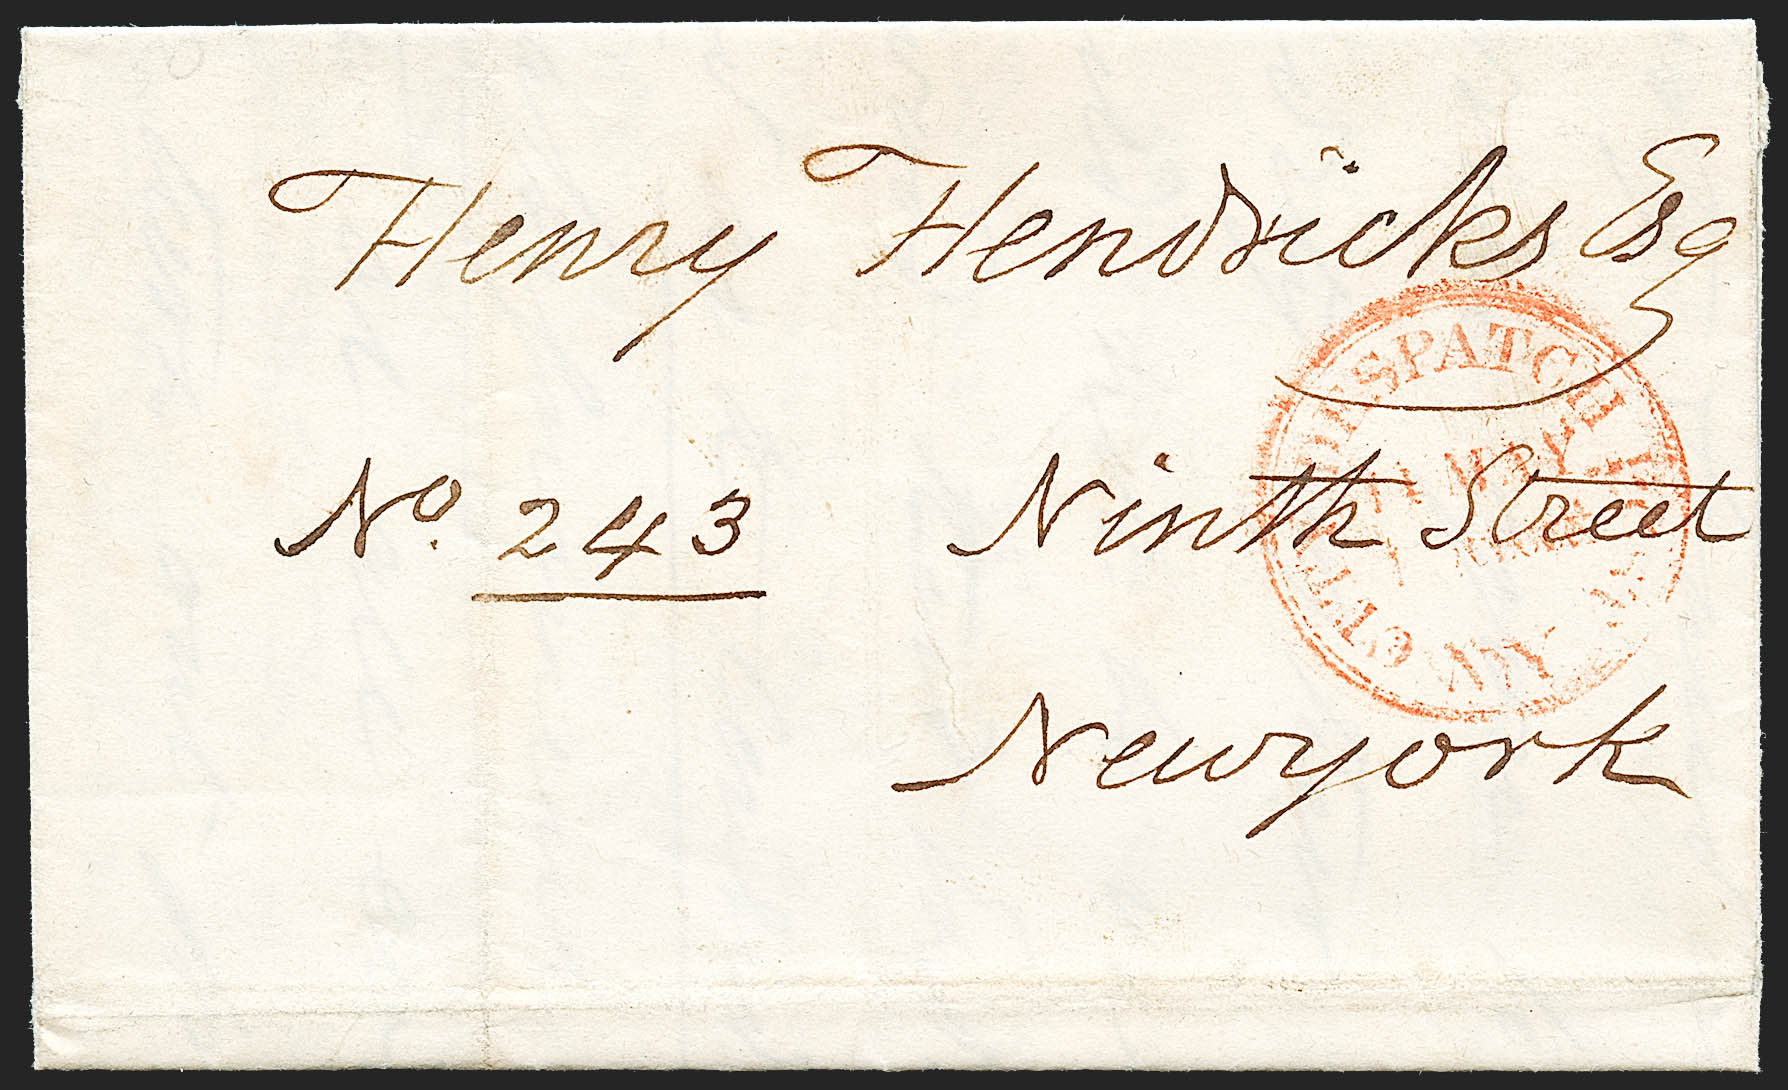 Henry Hendricks Esq
No. 243 Ninth Street
Newyork
CITY DESPATCH
N.Y